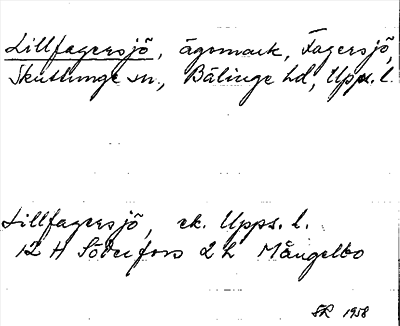 Lillfagersjö, ägomark, Fagersjö,
Skuttunge sn., Bälinge hd, Upps. l.
Lillfagersjö, ek. Upps. l.
12 H Söderfors 2 h Mångelbo
1958